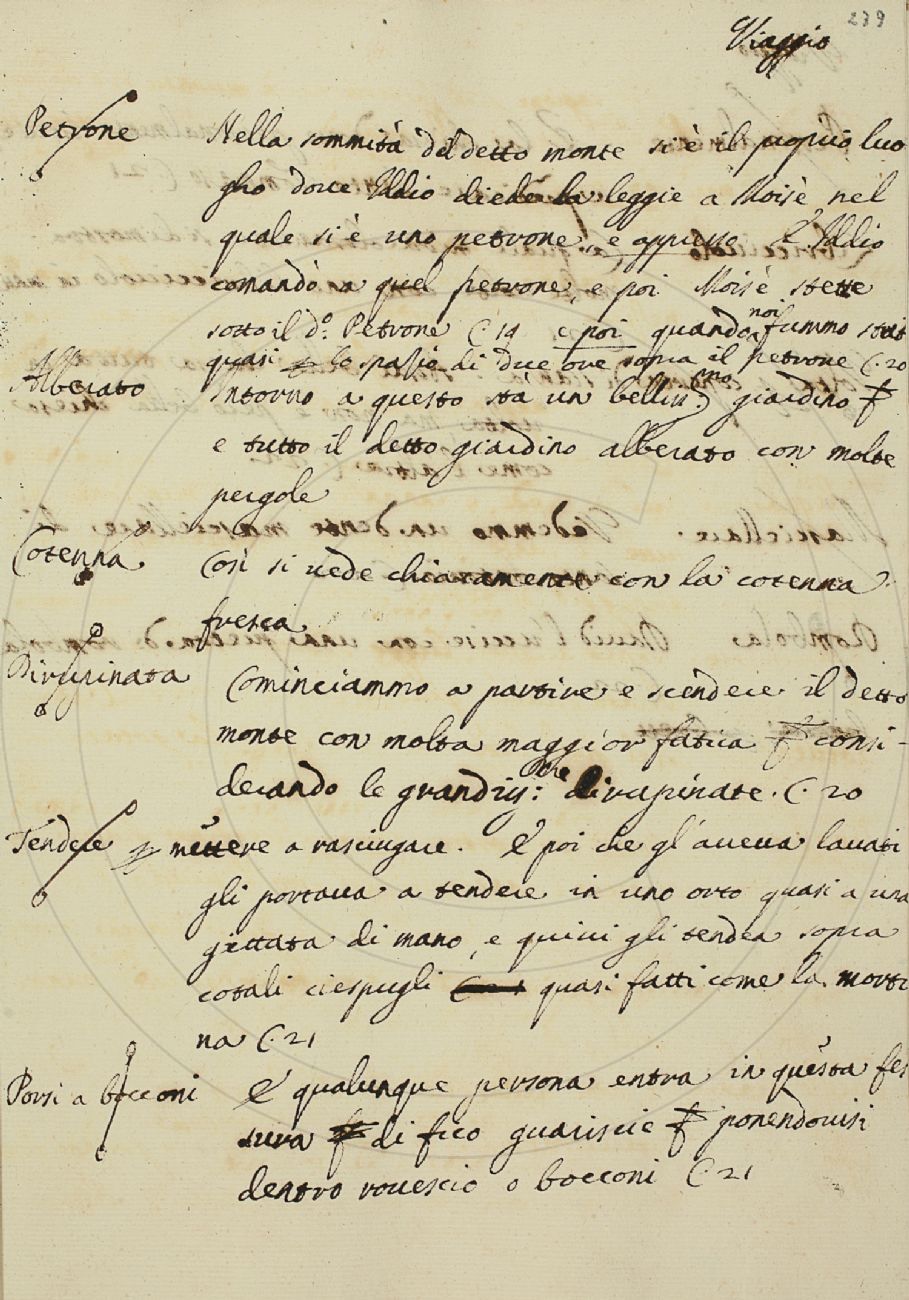 239
Viaggio
Petrone Nella sommità del detto monte si è il propio luo
gho dove Iddio diede la leggie a Moisè nel
quale si è uno petrone, e appresso E Iddio
comandò a quel petrone, e poi Moisè stette
sotto il d.° Petrone C. 19 e poi quando noi fummo stati
quasi lo spazio di due ore sopra il petrone C. 20
Alberato Intorno a questo stà un belliss.mo giardino
e tutto il detto giardino alberato con molte
pergole
Cotenna Così si vede chiaramente con la cotenna
fresca
Dirupinata Cominciammo a partire e scendere il detto
monte con molta maggior fatica consi-
derando le grandiss: me dirupinate. C. 20
Tendere mettere a rasciugare. E poi che gl'aveva lavati
gli portava a tendere in uno orto quasi a una
gittata di mano, e quivi gli tendea sopra
cotali ciespugli quasi fatti come la morti
na C. 21
Porsi a bocconi E qualunque persona entra in questa fes
sura di fico guariscie ponendovisi
dentro rovescio o bocconi C. 21